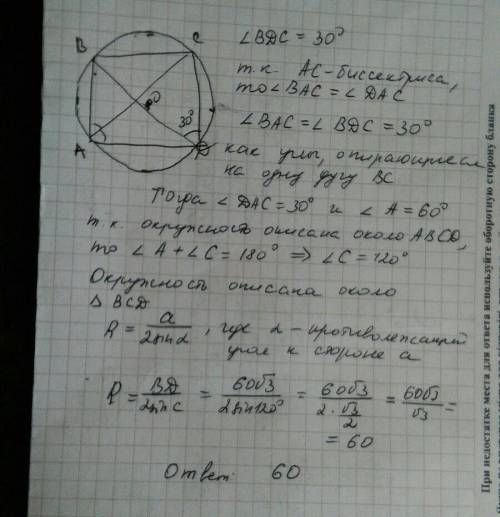 B
C
O
30°
A
D
∠BDC = 30°
т.к. AC-биссектриса,
то ∠BAC = ∠DAC
∠BAC = ∠BDC = 30°
как углы, опирающиеся
на одну дугу BC
Тогда ∠DAC = 30° и ∠A = 60°
т.к. окружность описана около ABCD,
то ∠A + ∠C = 180° ⇒ ∠C = 120°
Окружность описана около
Δ BCD
R = a / 2sinα, где α - противолежащий
угол к стороне a
R = BD / 2sinC = 60√3 / 2sin120° = 60√3 / 2·√3/2 = 60√3 / √3 =
= 60
Ответ: 60
При недостатке места для ответа используйте оборотную сторону бланка